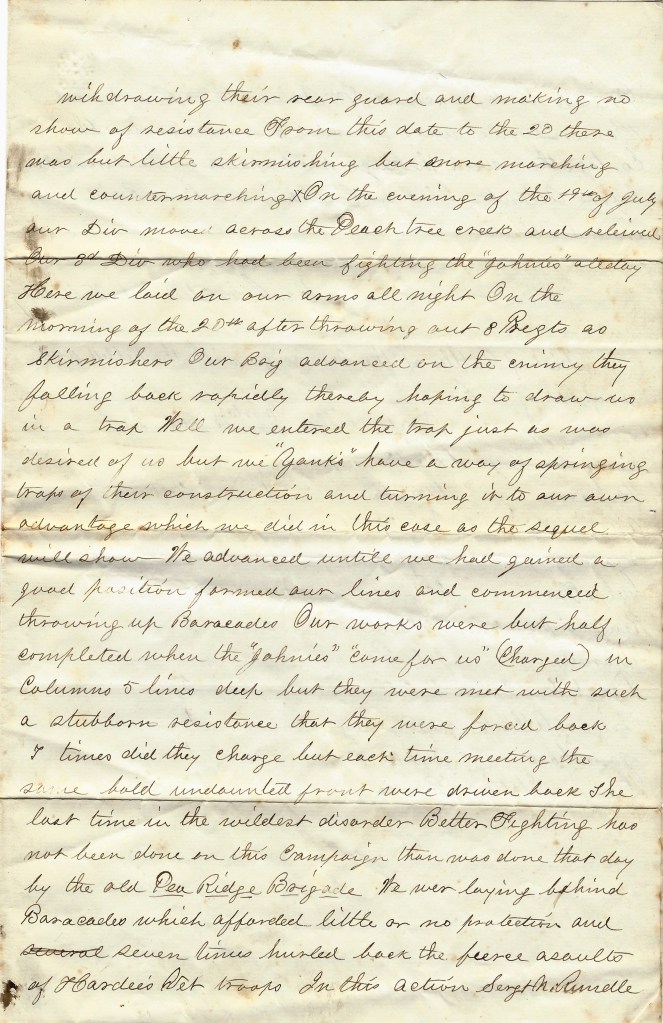 wihdrawing their rear guard and making no
show of resistance From this date to the 20 there
was but little skirmishing but more marching
and countermarching X On the evening of the 19th of July
our Div moved across the Peach tree creek and releived
Our 3d Div who had been fighting the "Johnies" all day
Here we laid on our arms all night On the
morning of the 20th after throwing out 8 Regts as
Skirmishers Our Brig advanced on the enimy they
falling back rapidly thereby hoping to draw us
in a trap Well we entered the trap just as was
desired of us but we "Yanks" have a way of springing
traps of their construction and turning it to our own
advantage which we did in this case as the sequel
will show We advanced untill we had gained a
good position formed our lines and commenced
throwing up Baracades Our works were but half
completed when the "Johnies" "come for us" (Charged) in
Columns 5 lines deep but they were met with such
a stubborn resistance that they were forced back
7 times did they charge but each time meeting the
same bold undaunted front were driven back The
last time in the wildest disorder Better Fighting has
not been done on this Campaign than was done that day
by the old Pea Ridge Brigade We wer laying behind
Baracades which afforded little or no protection and
several seven times hurled back the feerce asaults
of Hardee's Vet troops In this action Sergt